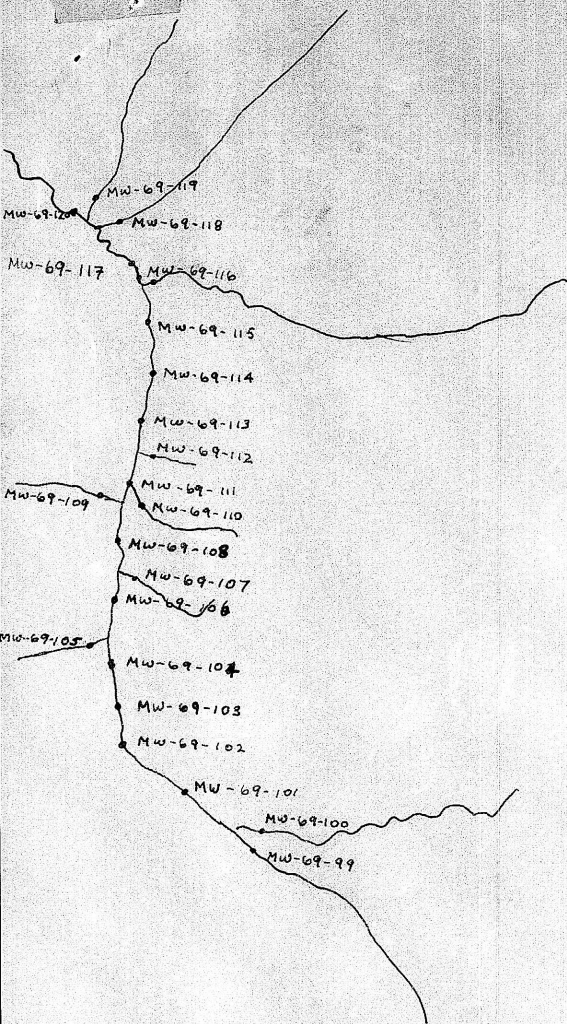 MW-69-119
MW-69-120
MW-69-118
MW-69-117
MW-69-116
MW-69-115
MW-69-114
MW-69-113
MW-69-112
MW-69-111
MW-69-109
MW-69-110
MW-69-108
MW-69-107
MW-69-106
MW-69-105
MW-69-104
MW-69-103
MW-69-102
MW-69-101
MW-69-100
MW-69-99